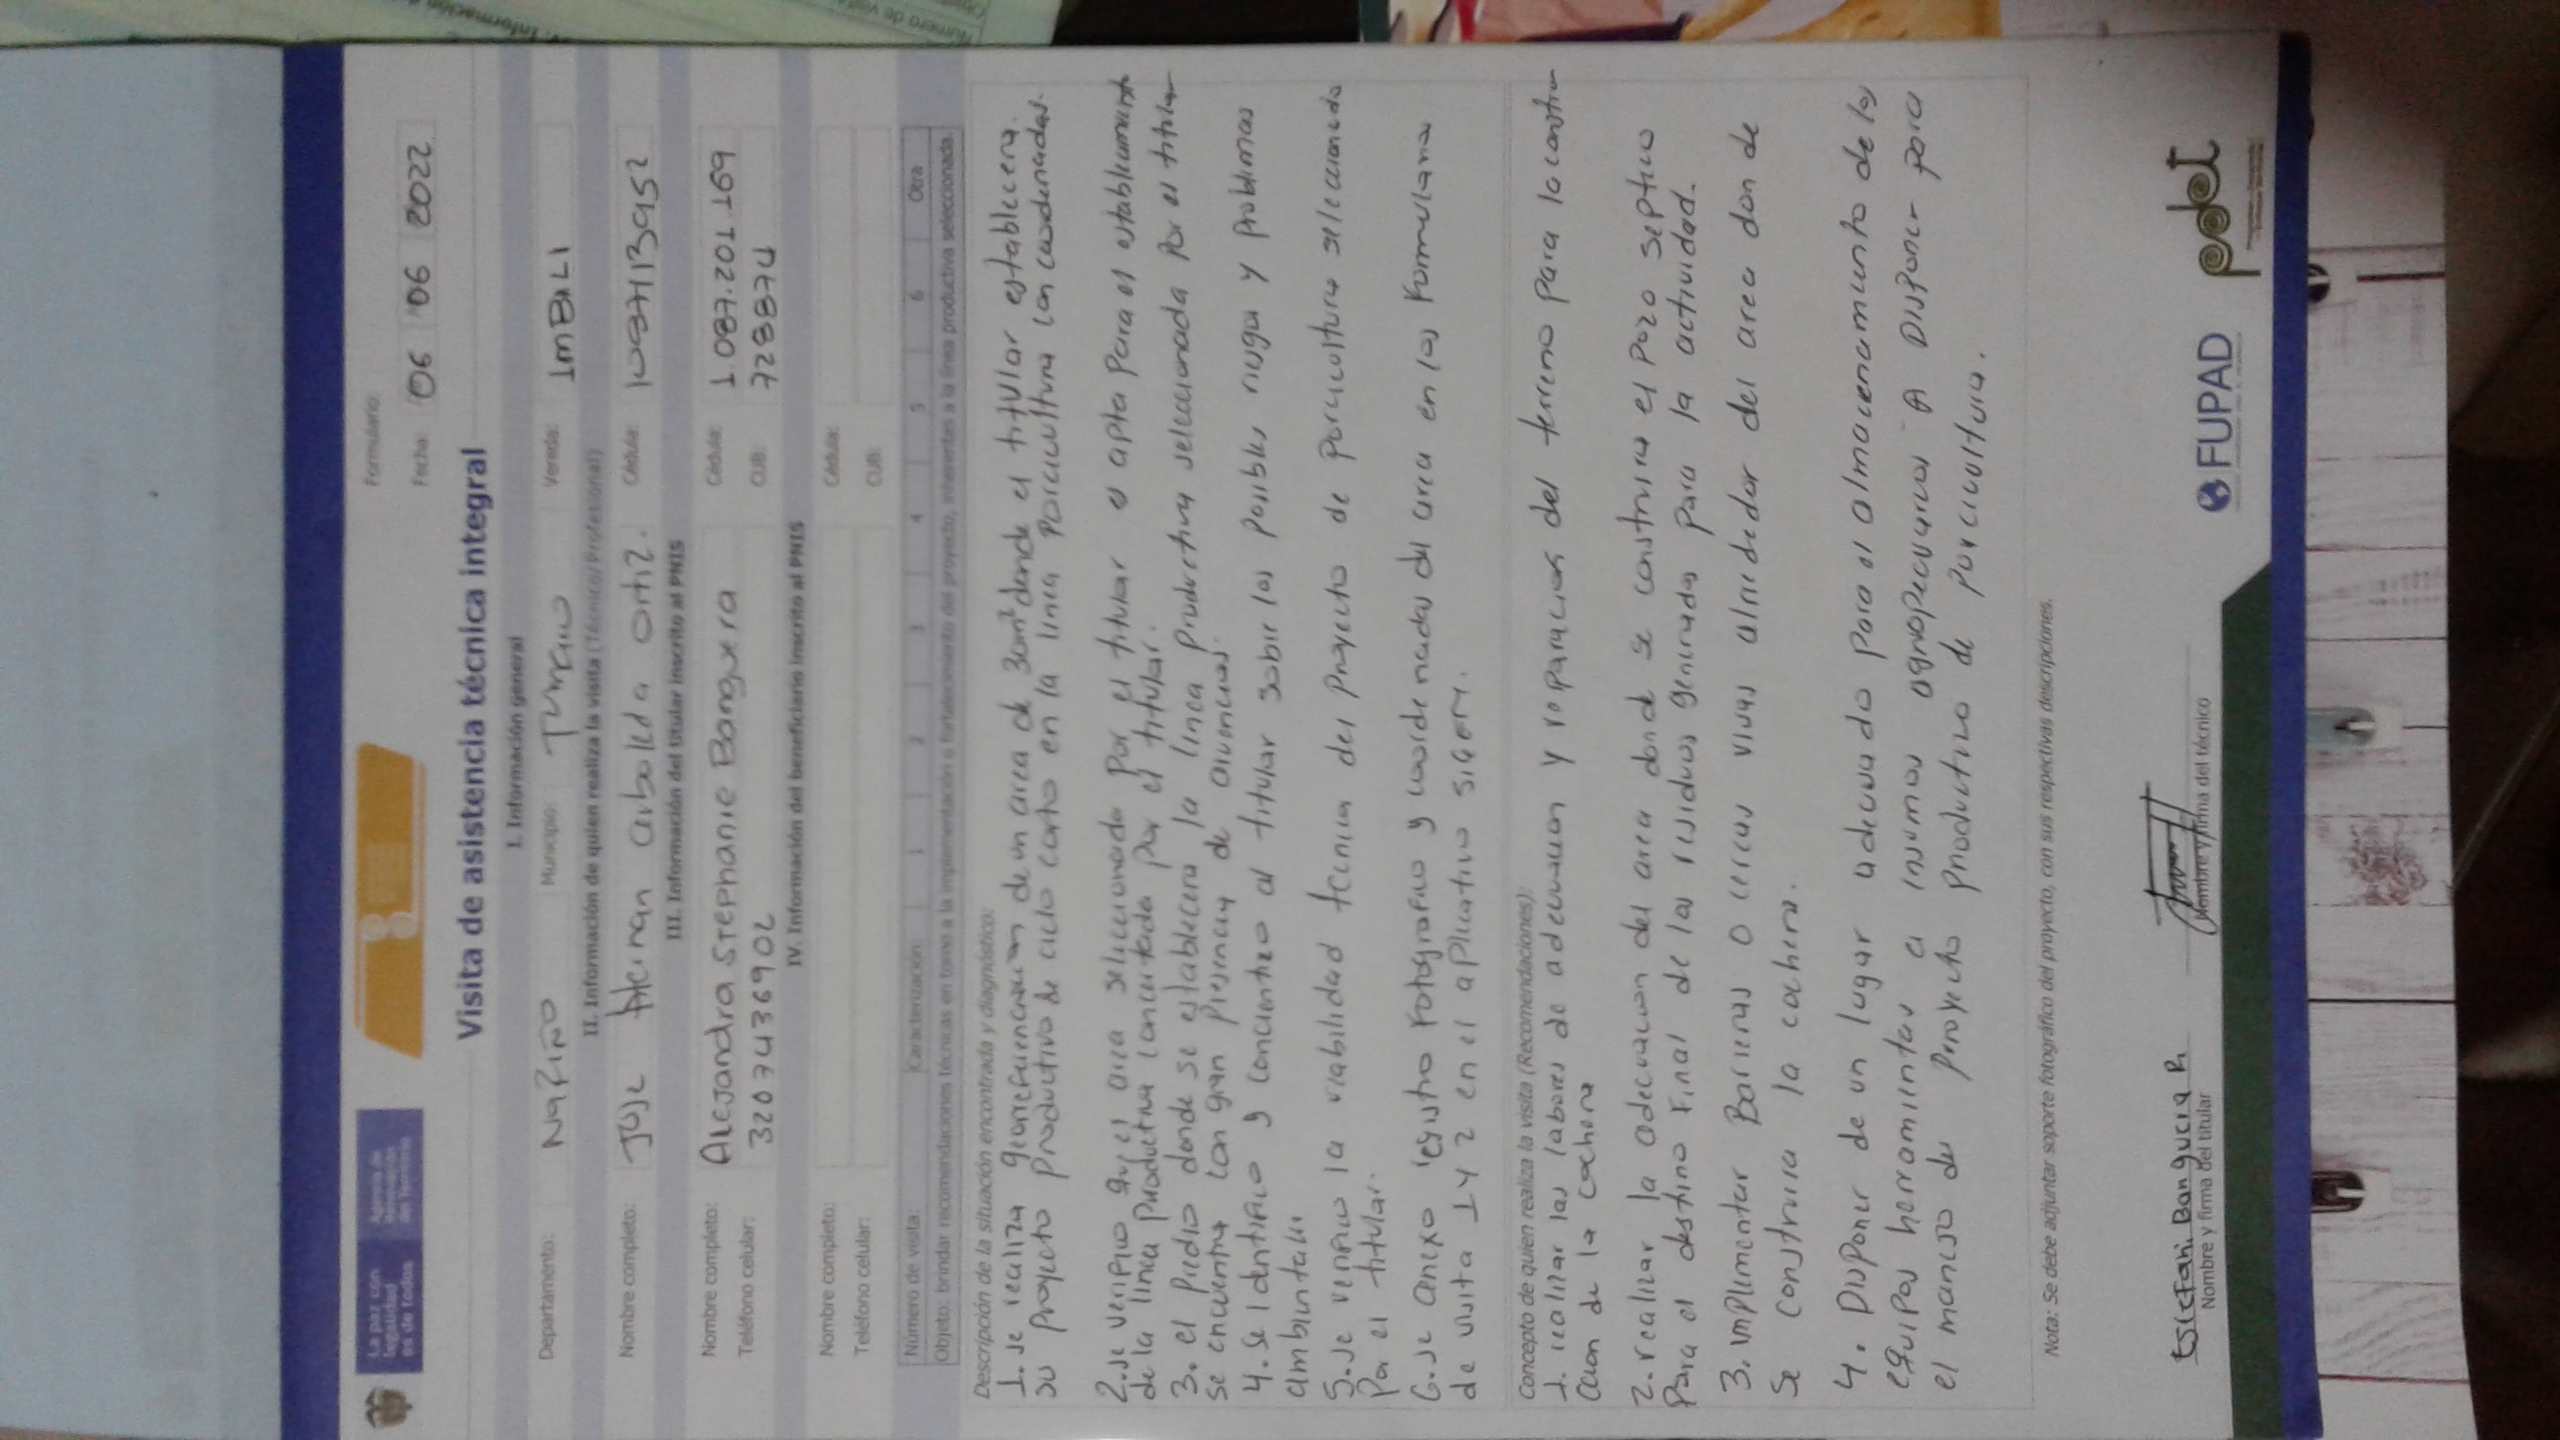 La paz con legalidad es de todos
Agencia de Renovación del Territorio
Formulario:
Fecha: 06 06 2022
Visita de asistencia técnica integral
I. Información general
Departamento: NaRiÑo Municipio: Tumaco Vereda: ImBiLI
II. Información de quien realiza la visita (Técnico/Profesional)
Nombre completo: Jose Hernan arboleda ortiz. Cédula: 1087113952
III. Información del titular inscrito al PNIS
Nombre completo: Alejandra Stephanie Banguera Cédula: 1.087.201.169
Teléfono celular: 3207436902 CUB: 7288874
IV. Información del beneficiario inscrito al PNIS
Nombre completo: Cédula:
Teléfono celular: CUB:
Número de visita: Caracterización 1 2 3 4 5 6 Otra
Objeto: brindar recomendaciones técnicas en torno a la implementación o fortalecimiento del proyecto, inherentes a la línea productiva seleccionada.
Descripción de la situación encontrada y diagnóstico:
1. se realiza georefuenciacion de un area de 30m² donde el titular establecera
su proyecto productivo de ciclo corto en la linea porcicultura con coordenadas.
2. se verifico que el area seleccionada por el titular es apta para el establecimiento
de la linea productiva concertada por el titular.
3. el predio donde se establecera la linea productiva seleccionada por el titular
se encuentra con gran presencia de
4. se identifico y concientizo al titular sobre los posibles riesgos y problemas
ambientales
5. se verifico la viabilidad tecnica del proyecto de porcicultura seleccionado
por el titular.
6. se anexo registro fotografico y coordenadas del area en los formularios
de visita 1 y 2 en el aplicativo
Concepto de quien realiza la visita (Recomendaciones):
1. realizar las labores de adecuacion y reparacion del terreno para la constru
ccion de la cochera
2. realizar la adecuacion del area donde se construira el pozo septico
para el destino final de los residuos generados para la actividad.
3. implementar Barreras o cercas vivas alrededor del area don de
se construira la cochera.
4. Disponer de un lugar adecuado para el almacenamiento de los
equipos herramientas e insumos agropecuarios A Disponer para
el manejo del proyecto productivo de porcicultura.
Nota: Se debe adjuntar soporte fotográfico del proyecto, con sus respectivas descripciones.
Estefani Banguera R.
Nombre y firma del titular
Nombre y firma del técnico
FUPAD
pdet